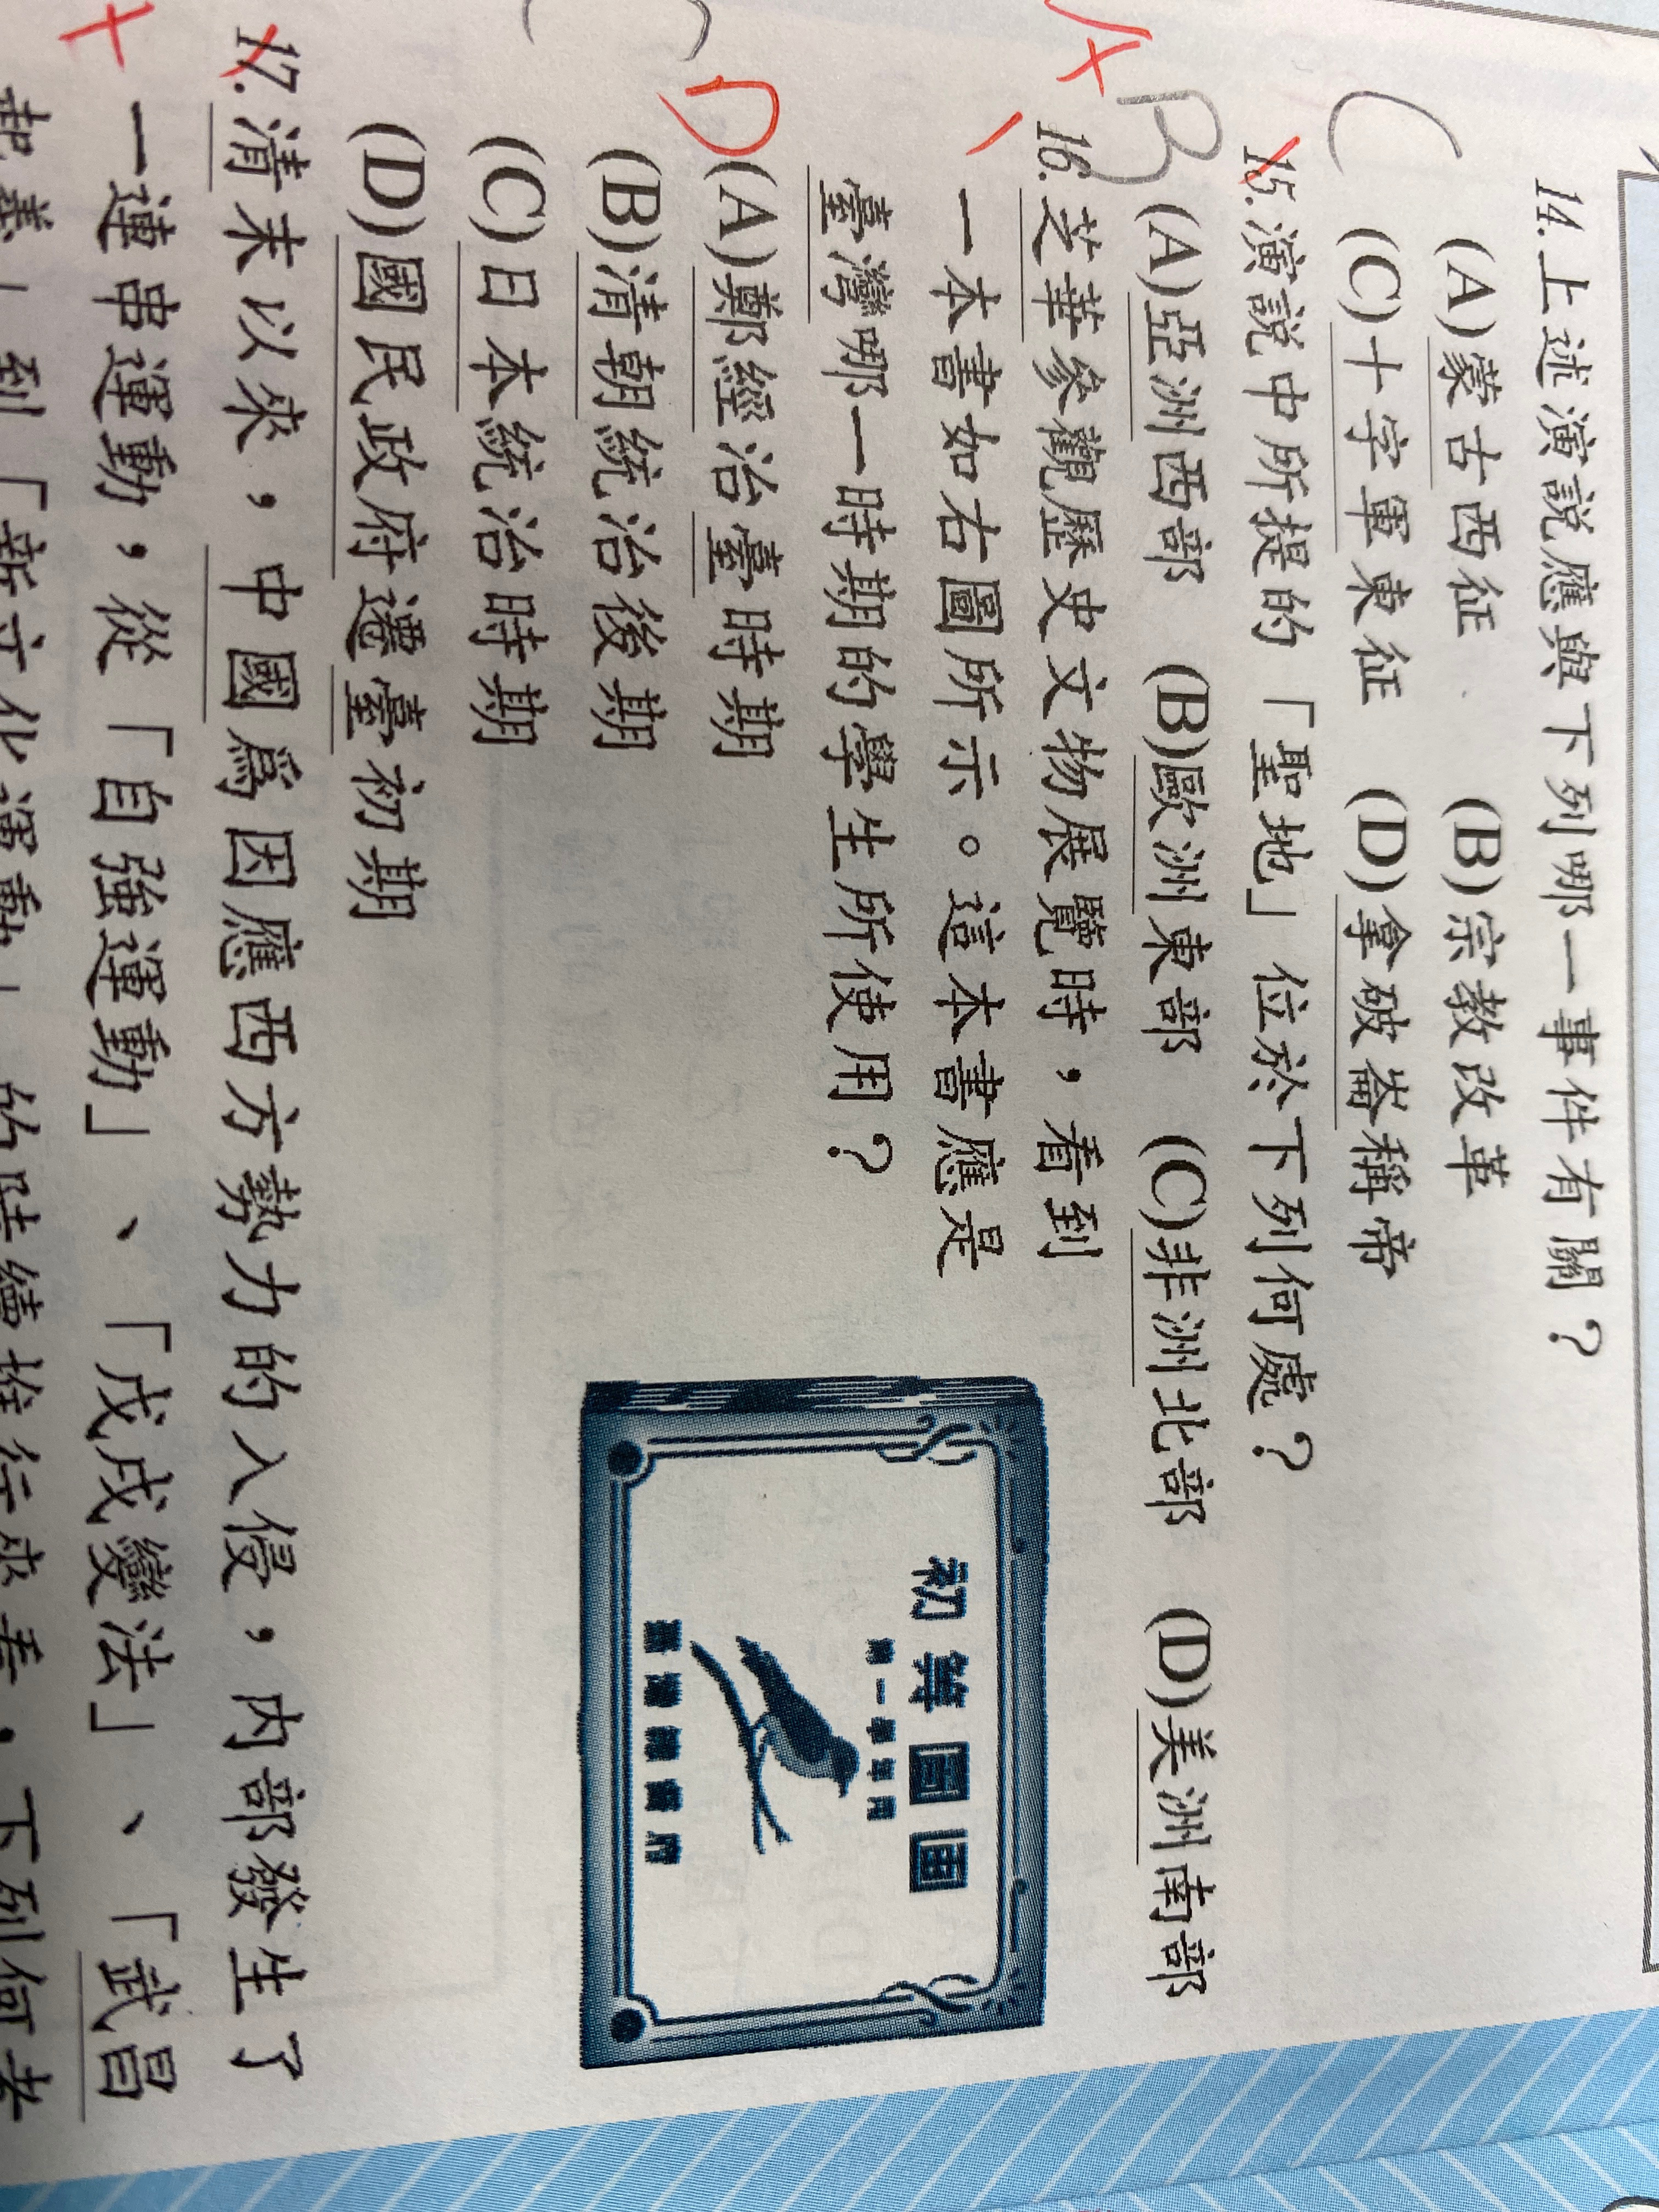 14.上述演說應與下列哪一事件有關？
(A)蒙古西征 (B)宗教改革
C (C)十字軍東征 (D)拿破崙稱帝
15.演說中所提的「聖地」位於下列何處？
B (A)亞洲西部 (B)歐洲東部 (C)非洲北部 (D)美洲南部
A
16.芝華參觀歷史文物展覽時，看到
一本書如右圖所示。這本書應是
臺灣哪一時期的學生所使用？
D (A)鄭經治臺時期
C (B)清朝統治後期
(C)日本統治時期
(D)國民政府遷臺初期
初等圖画
第一學年用
臺灣總督府
17.清末以來，中國為因應西方勢力的入侵，內部發生了
一連串運動，從「自強運動」、「戊戌變法」、「武昌
起義」到「新文化運動」的陸續推行來看，下列何者